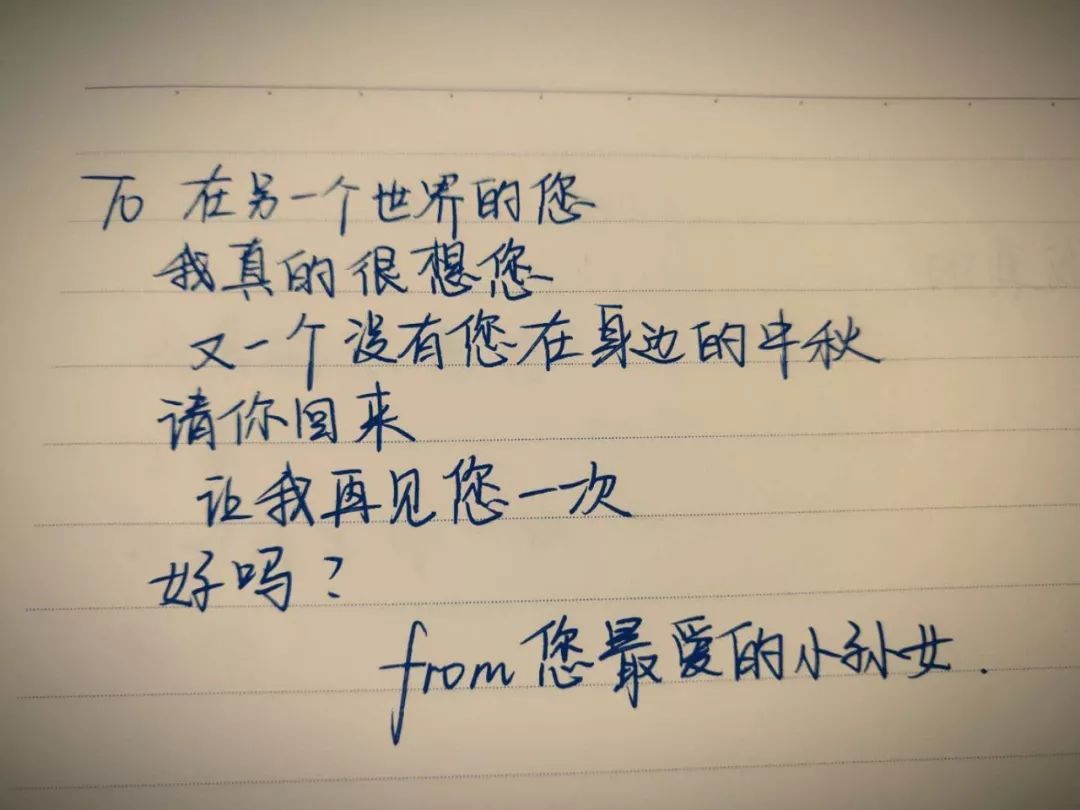 To 在另一个世界的您
我真的很想您
又一个没有您在身边的中秋
请你回来
让我再见您一次
好吗?
from 您最爱的小孙女.